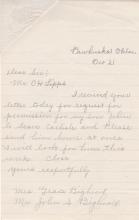 Pawhuska Okla.
Oct 21
Dear Sir:
Mr. O H Lipps
I received your
letter today for request for
permission for my son John
to leave Carlisle and Please
send him home at once
I will look for him this
week. Close
yours respectfully
Mrs Grace Bighorse
Mr John S. Bighorse